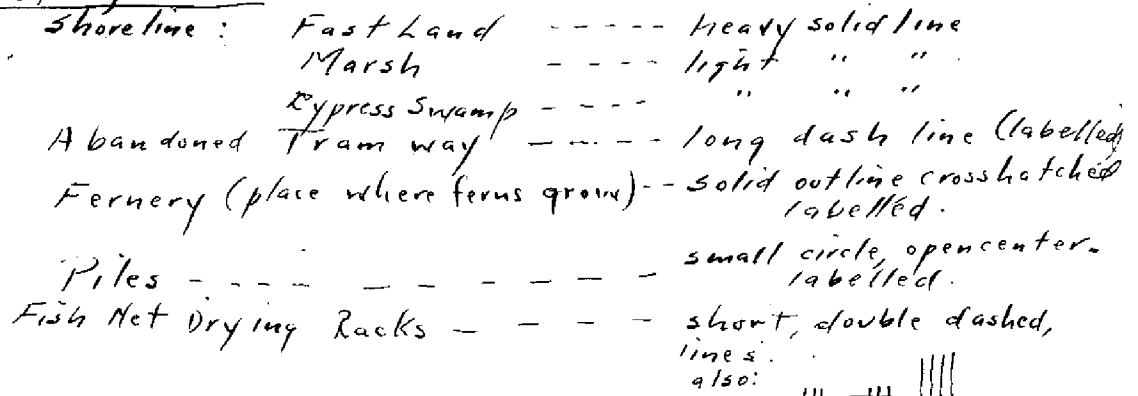 Shoreline: Fast Land ----- heavy solid line
Marsh ---- light " " .
Cypress Swamp ---- " " "
Abandoned Tram way ----- long dash line (labelled)
Fernery (place where ferns grow)-- solid outline crosshatched
labelled.
small circle, open center-
Piles ---- — — — — — — labelled.
Fish Net Drying Racks — — — — short, double dashed,
lines.
also: